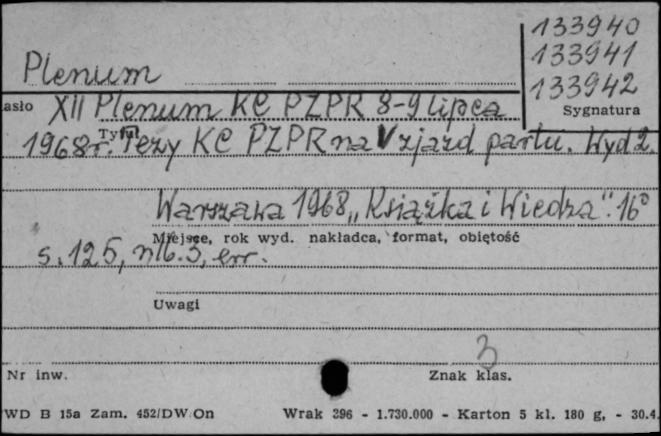 133940
133941
Plenum 133942
asło XII Plenum KC PZPR 8-9 lipca Sygnatura
1968r. Tytuł Tezy KC PZPR na V zjazd partii. Wyd 2.
Warszawa 1968 „Książka i Wiedza". 16°
Miejsce, rok wyd. nakładca, format, objętość
s. 125, nlb. 3, err.
Uwagi
3
Nr inw. Znak klas.
WD B 15a Zam. 452/DW On Wrak 396 - 1.730.000 - Karton 5 kl. 180 g, - 30.4.